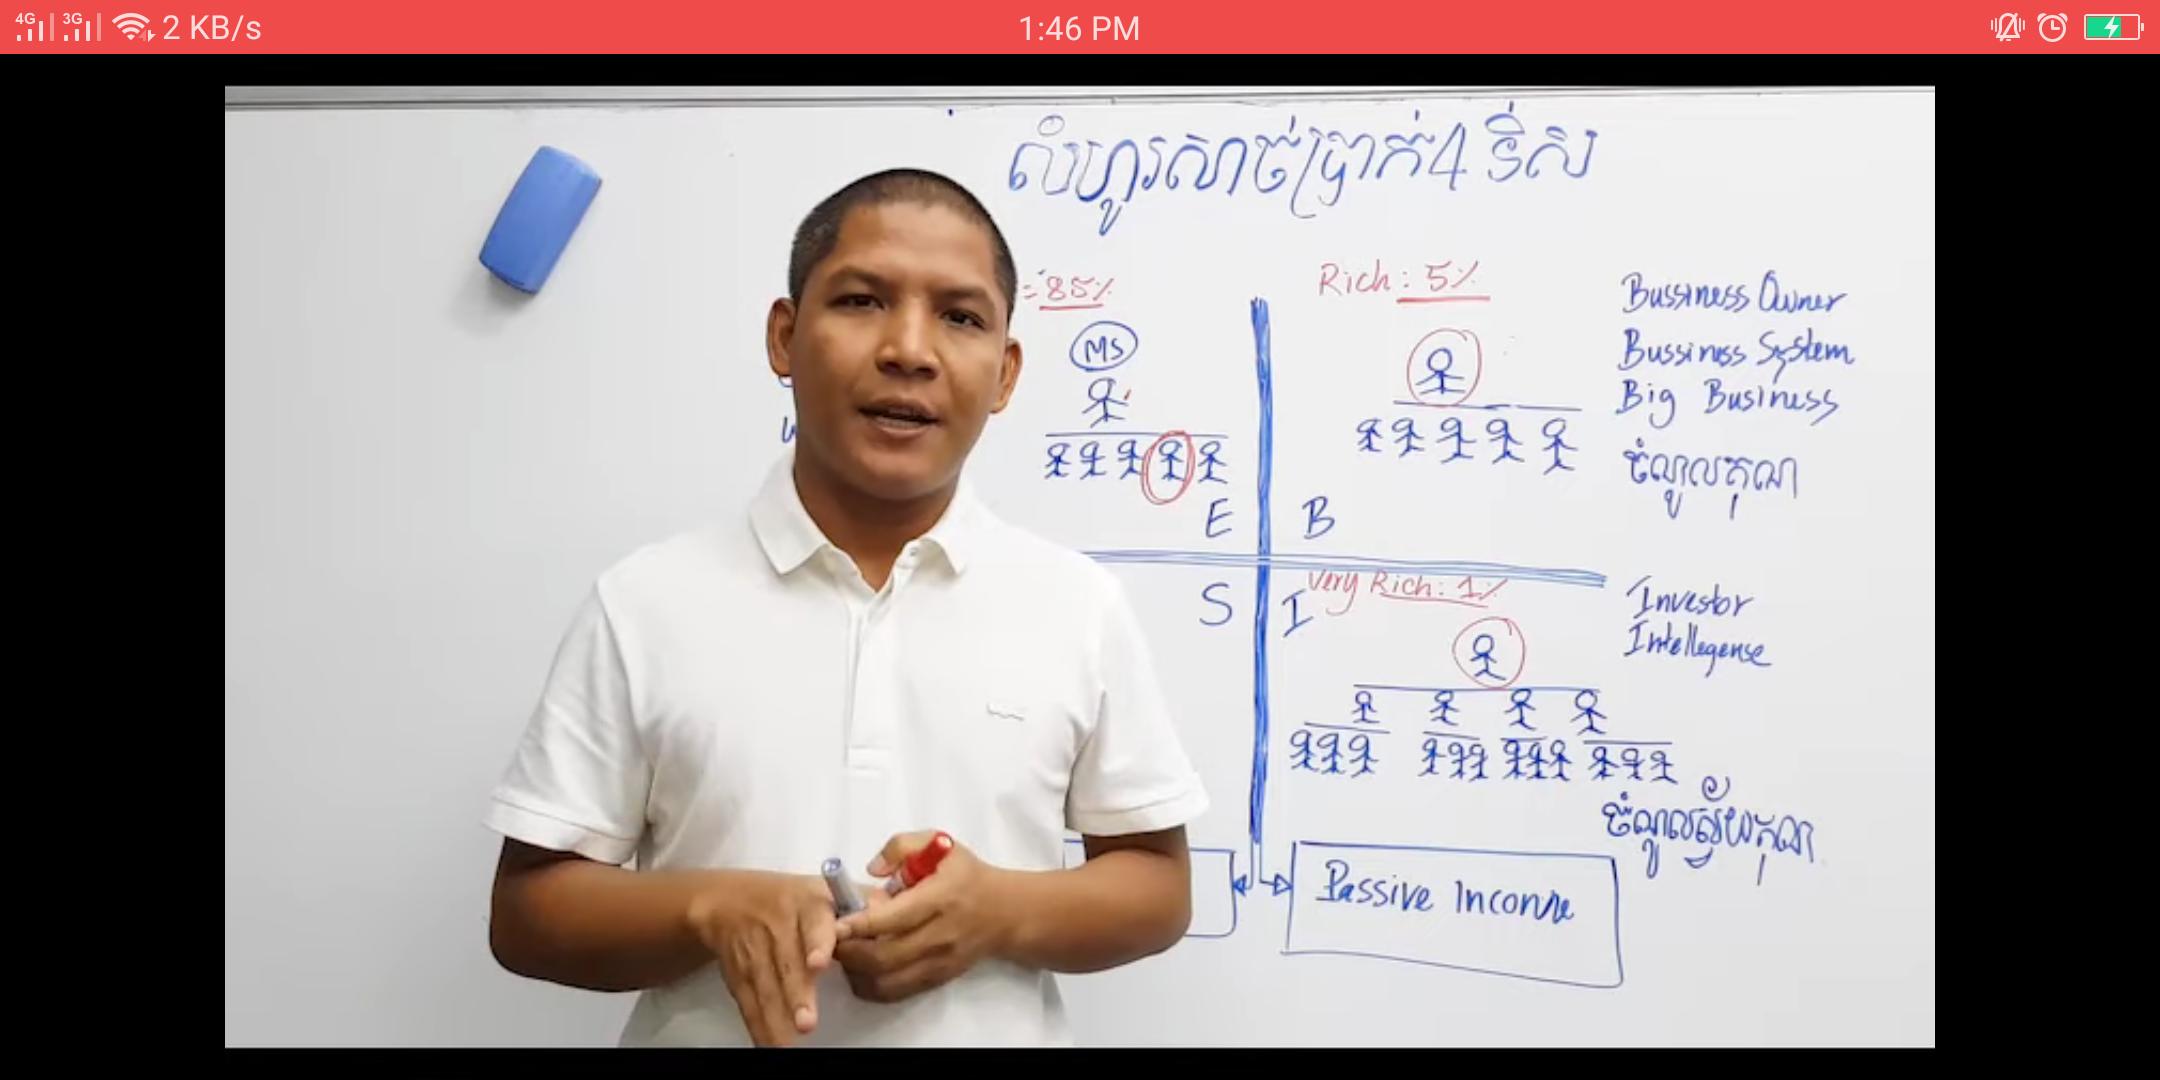 4G 3G 2 KB/s
1:46 PM
លំហូរសាច់ប្រាក់4 ទិស
=85%
MS
E
S
Rich: 5%
B
Bussiness Owner
Bussiness System
Big Business
ចំណូលគុណ
I
Very Rich: 1%
Investor
Intellegense
ចំណូលស្វ័យគុណ
Passive Income